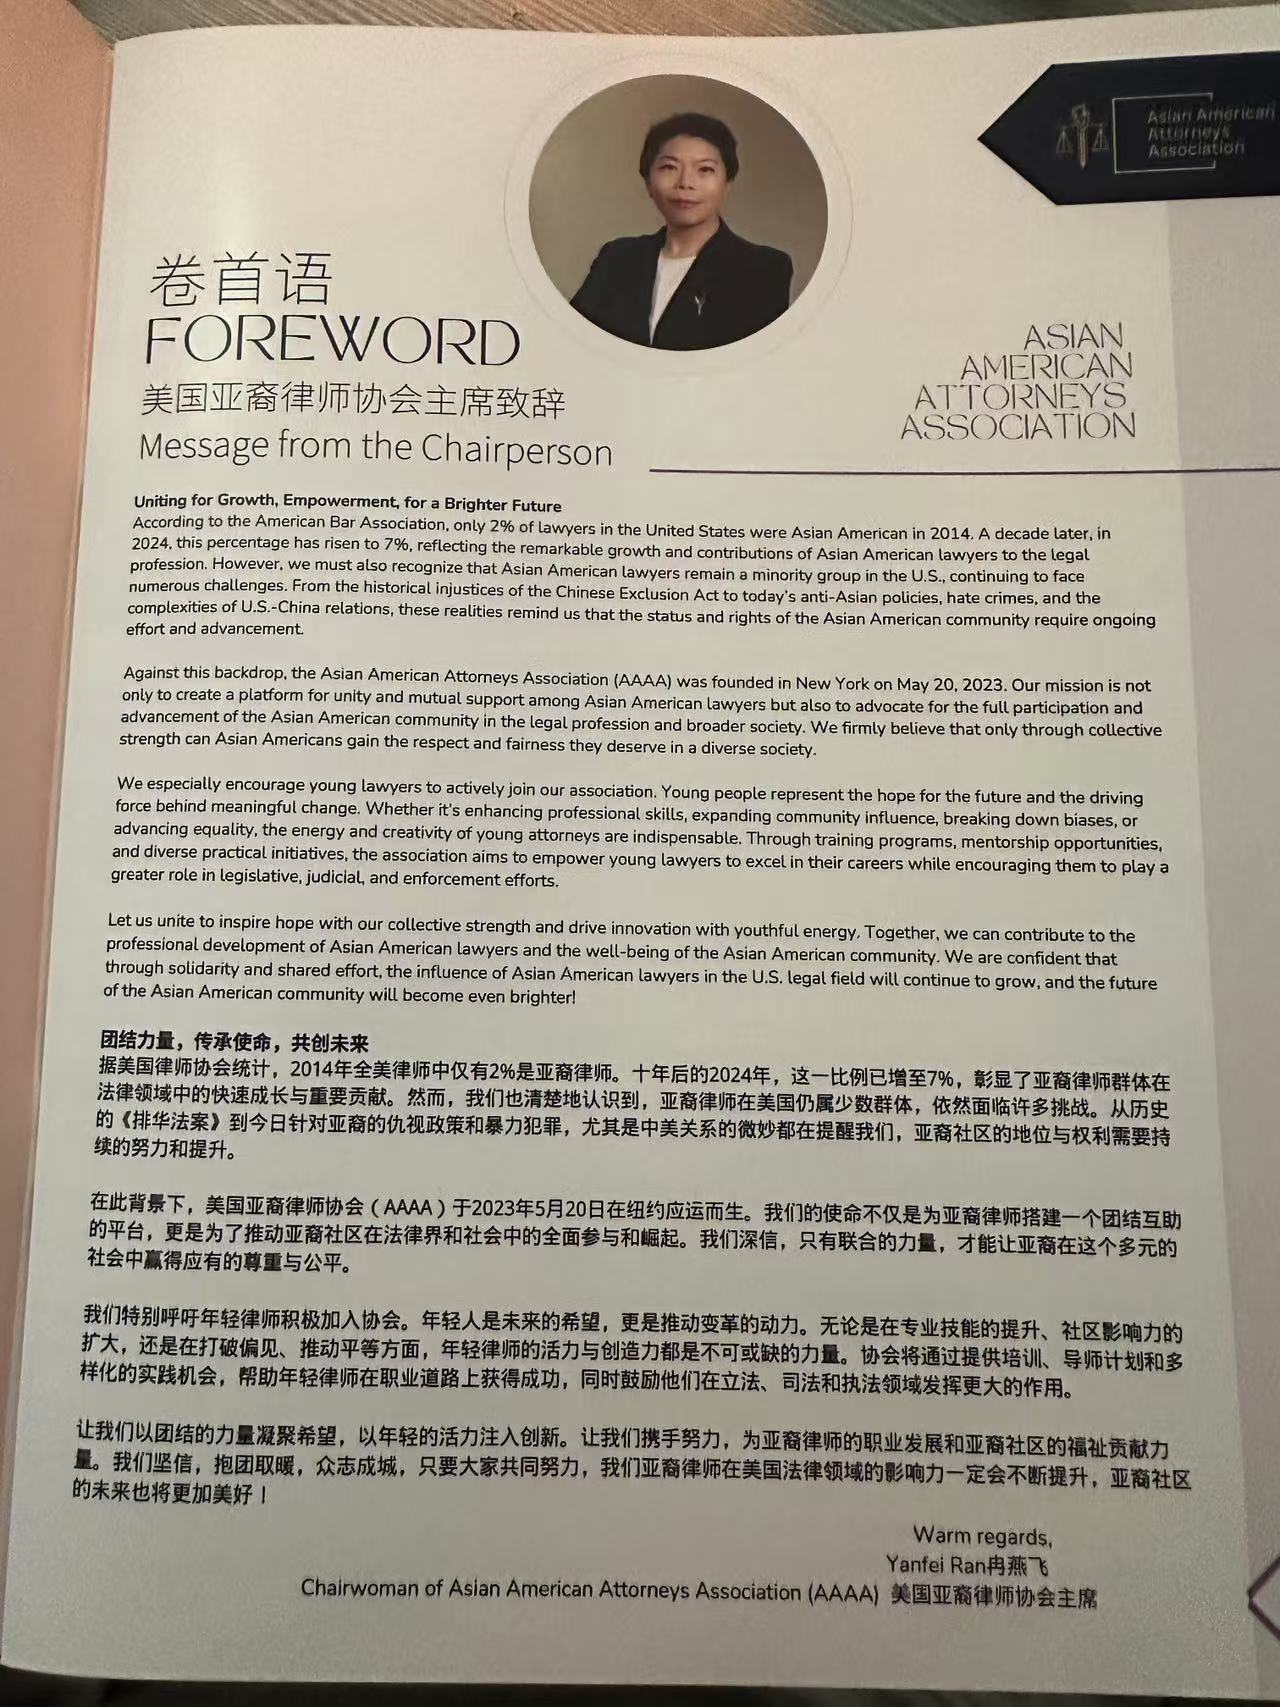 Asian American
Attorneys
Association
卷首语
FOREWORD
美国亚裔律师协会主席致辞
Message from the Chairperson
ASIAN
AMERICAN
ATTORNEYS
ASSOCIATION
Uniting for Growth, Empowerment, for a Brighter Future
According to the American Bar Association, only 2% of lawyers in the United States were Asian American in 2014. A decade later, in
2024, this percentage has risen to 7%, reflecting the remarkable growth and contributions of Asian American lawyers to the legal
profession. However, we must also recognize that Asian American lawyers remain a minority group in the U.S., continuing to face
numerous challenges. From the historical injustices of the Chinese Exclusion Act to today's anti-Asian policies, hate crimes, and the
complexities of U.S.-China relations, these realities remind us that the status and rights of the Asian American community require ongoing
effort and advancement.
Against this backdrop, the Asian American Attorneys Association (AAAA) was founded in New York on May 20, 2023. Our mission is not
only to create a platform for unity and mutual support among Asian American lawyers but also to advocate for the full participation and
advancement of the Asian American community in the legal profession and broader society. We firmly believe that only through collective
strength can Asian Americans gain the respect and fairness they deserve in a diverse society.
We especially encourage young lawyers to actively join our association. Young people represent the hope for the future and the driving
force behind meaningful change. Whether it's enhancing professional skills, expanding community influence, breaking down biases, or
advancing equality, the energy and creativity of young attorneys are indispensable. Through training programs, mentorship opportunities,
and diverse practical initiatives, the association aims to empower young lawyers to excel in their careers while encouraging them to play a
greater role in legislative, judicial, and enforcement efforts.
Let us unite to inspire hope with our collective strength and drive innovation with youthful energy. Together, we can contribute to the
professional development of Asian American lawyers and the well-being of the Asian American community. We are confident that
through solidarity and shared effort, the influence of Asian American lawyers in the U.S. legal field will continue to grow, and the future
of the Asian American community will become even brighter!
团结力量，传承使命，共创未来
据美国律师协会统计，2014年全美律师中仅有2%是亚裔律师。十年后的2024年，这一比例已增至7%，彰显了亚裔律师群体在
法律领域中的快速成长与重要贡献。然而，我们也清楚地认识到，亚裔律师在美国仍属少数群体，依然面临许多挑战。从历史
的《排华法案》到今日针对亚裔的仇视政策和暴力犯罪，尤其是中美关系的微妙都在提醒我们，亚裔社区的地位与权利需要持
续的努力和提升。
在此背景下，美国亚裔律师协会（AAAA）于2023年5月20日在纽约应运而生。我们的使命不仅是为亚裔律师搭建一个团结互助
的平台，更是为了推动亚裔社区在法律界和社会中的全面参与和崛起。我们深信，只有联合的力量，才能让亚裔在这个多元的
社会中赢得应有的尊重与公平。
我们特别呼吁年轻律师积极加入协会。年轻人是未来的希望，更是推动变革的动力。无论是在专业技能的提升、社区影响力的
扩大，还是在打破偏见、推动平等方面，年轻律师的活力与创造力都是不可或缺的力量。协会将通过提供培训、导师计划和多
样化的实践机会，帮助年轻律师在职业道路上获得成功，同时鼓励他们在立法、司法和执法领域发挥更大的作用。
让我们以团结的力量凝聚希望，以年轻的活力注入创新。让我们携手努力，为亚裔律师的职业发展和亚裔社区的福祉贡献力
量。我们坚信，抱团取暖，众志成城，只要大家共同努力，我们亚裔律师在美国法律领域的影响力一定会不断提升，亚裔社区
的未来也将更加美好！
Warm regards,
Yanfei Ran冉燕飞
Chairwoman of Asian American Attorneys Association (AAAA) 美国亚裔律师协会主席